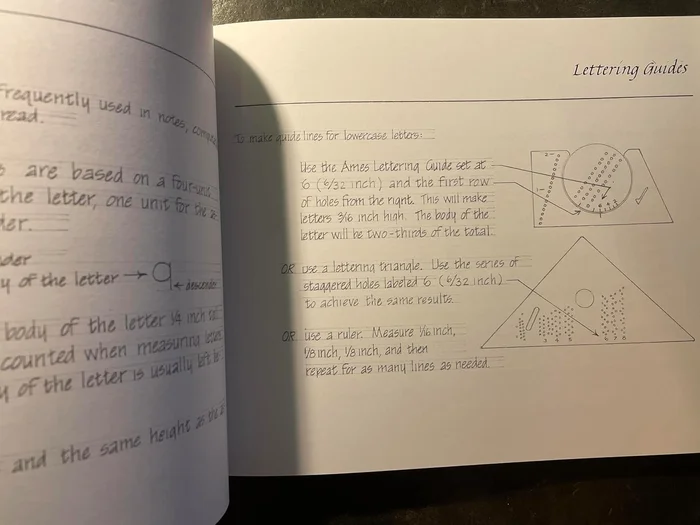 Frequently used in notes,
read.
are based on a four-unit
the letter, one unit for the
der.
der
y of the letter → a ← descender
body of the letter 1/4 inch tall
counted when measuring letters
y of the letter is usually left
and the same height as the
Lettering Guides
To make guide lines for lowercase letters:
Use the Ames Lettering Guide set at
6 (6/32 inch) and the first row
of holes from the right. This will make
letters 3/16 inch high. The body of the
letter will be two-thirds of the total.
OR use a lettering triangle. Use the series of
staggered holes labeled 6 (6/32 inch)
to achieve the same results.
OR use a ruler. Measure 1/16 inch,
1/8 inch, 1/8 inch, and then
repeat for as many lines as needed.